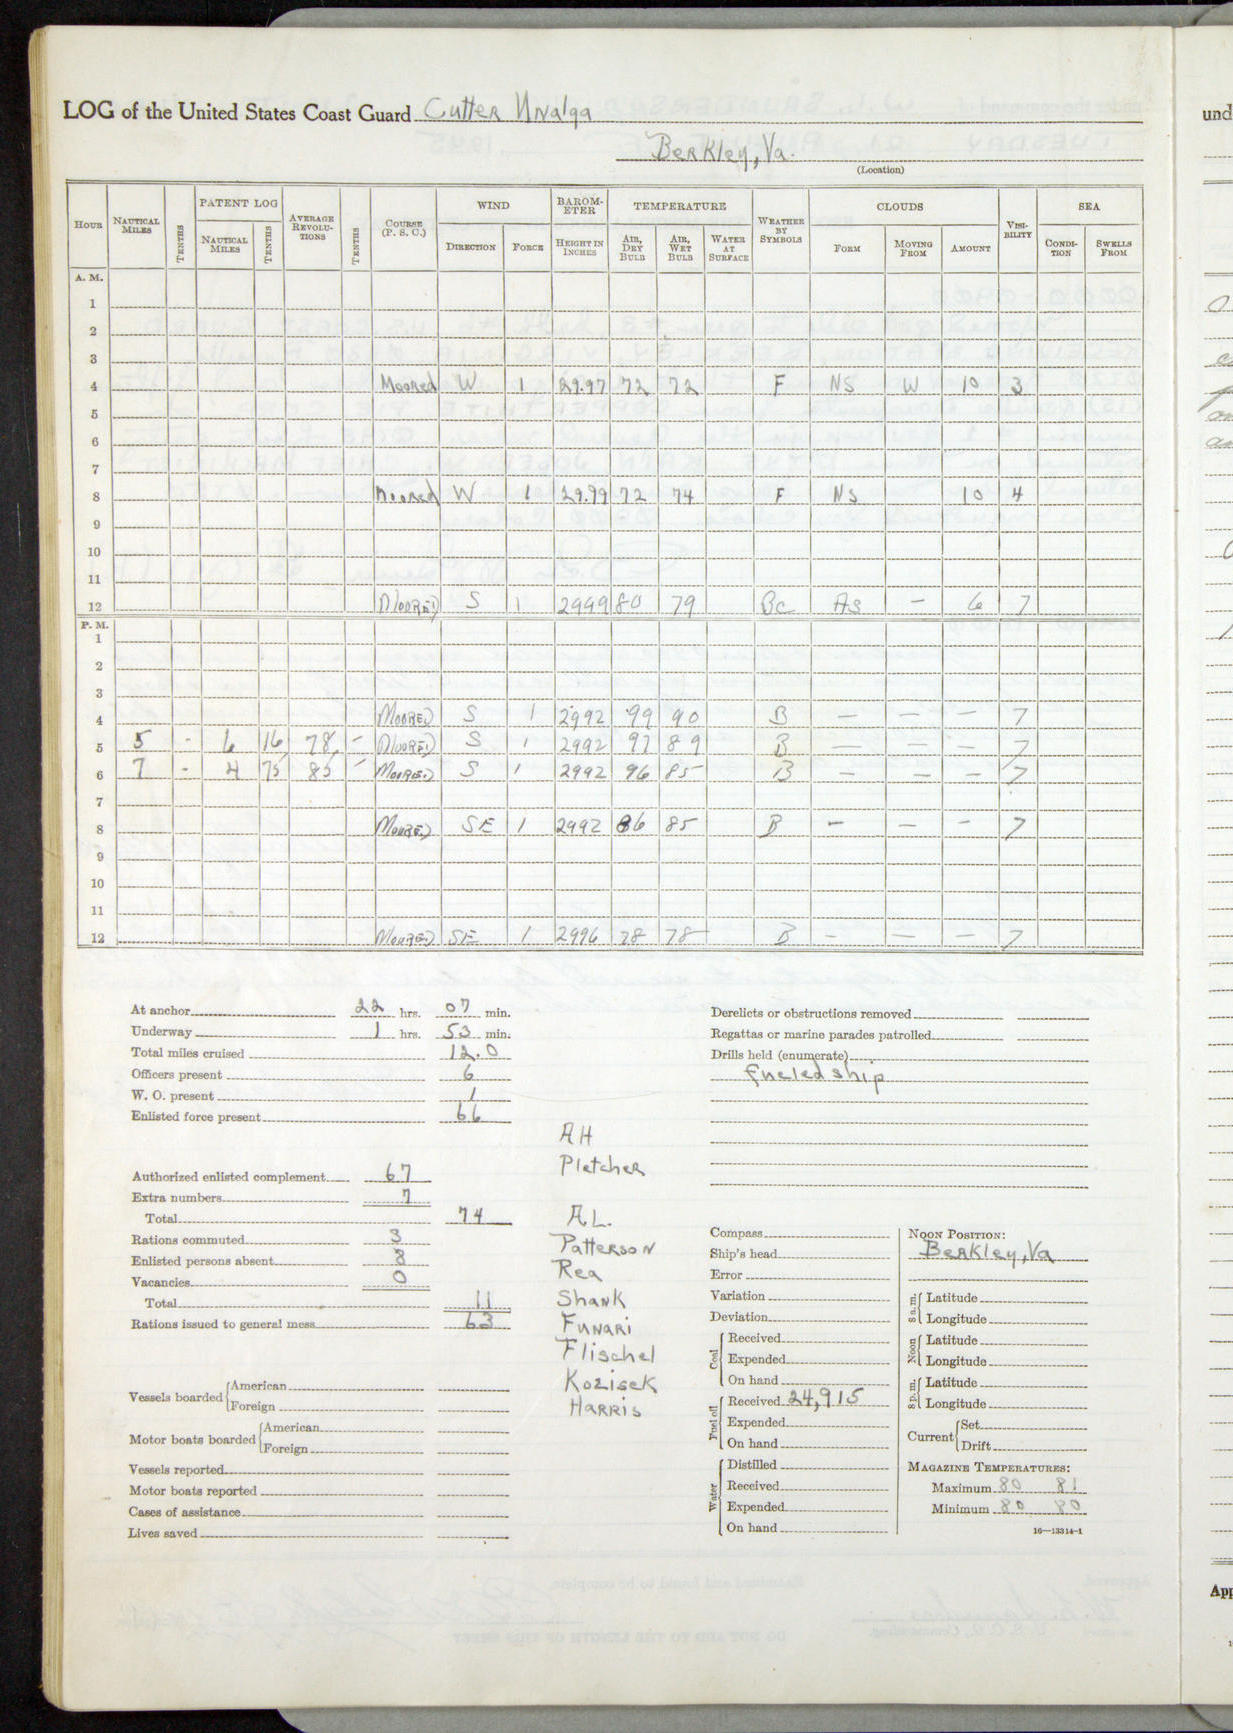 LOG of the United States Coast Guard Cutter Unalga
Berkley, Va.
(Location)
HOUR NAUTICAL MILES TENTHS PATENT LOG AVERAGE REVOLUTIONS TENTHS COURSE (P. S. C.) WIND BAROMETER TEMPERATURE WEATHER BY SYMBOLS CLOUDS VISIBILITY SEA
NAUTICAL MILES TENTHS DIRECTION FORCE HEIGHT IN INCHES AIR, DRY BULB AIR, WET BULB WATER AT SURFACE FORM MOVING FROM AMOUNT CONDITION SWELLS FROM
A. M.
1
2
3
4 Moored W 1 29.97 72 72 F NS W 10 3
5
6
7
8 Moored W 1 29.99 72 74 F NS 10 4
9
10
11
12 MOORED S 1 2999 80 79 Bc As — 6 7
P. M.
1
2
3
4 MOORED S 1 2992 99 90 B — — — 7
5 5 - 6 16 78 - MOORED S 1 2992 97 89 B — — — 7
6 7 - 4 75 85 - MOORED S 1 2992 96 85 B — — — 7
7
8 MOORED SE 1 2992 86 85 B — — — 7
9
10
11
12 MOORED SE 1 2996 78 78 B — — — 7
At anchor 22 hrs. 07 min.
Underway 1 hrs. 53 min.
Total miles cruised 12.0
Officers present 6
W. O. present 1
Enlisted force present 66
Authorized enlisted complement 67
Extra numbers 7
Total 74
Rations commuted 3
Enlisted persons absent 8
Vacancies 0
Total 11
Rations issued to general mess 63
Vessels boarded American
Foreign
Motor boats boarded American
Foreign
Vessels reported
Motor boats reported
Cases of assistance
Lives saved
AH
Pletcher
AL.
Patterson
Rea
Shank
Funari
Flischel
Kozisek
Harris
Derelicts or obstructions removed
Regattas or marine parades patrolled
Drills held (enumerate)
fueled ship
Compass
Ship's head
Error
Variation
Deviation
Coal Received
Expended
On hand
Fuel oil Received 24,915
Expended
On hand
Water Distilled
Received
Expended
On hand
NOON POSITION:
Berkley, Va
8 a.m. Latitude
Longitude
Noon Latitude
Longitude
8 p.m. Latitude
Longitude
Current Set
Drift
MAGAZINE TEMPERATURES:
Maximum 80 81
Minimum 80 80
16—13314-1
und
App